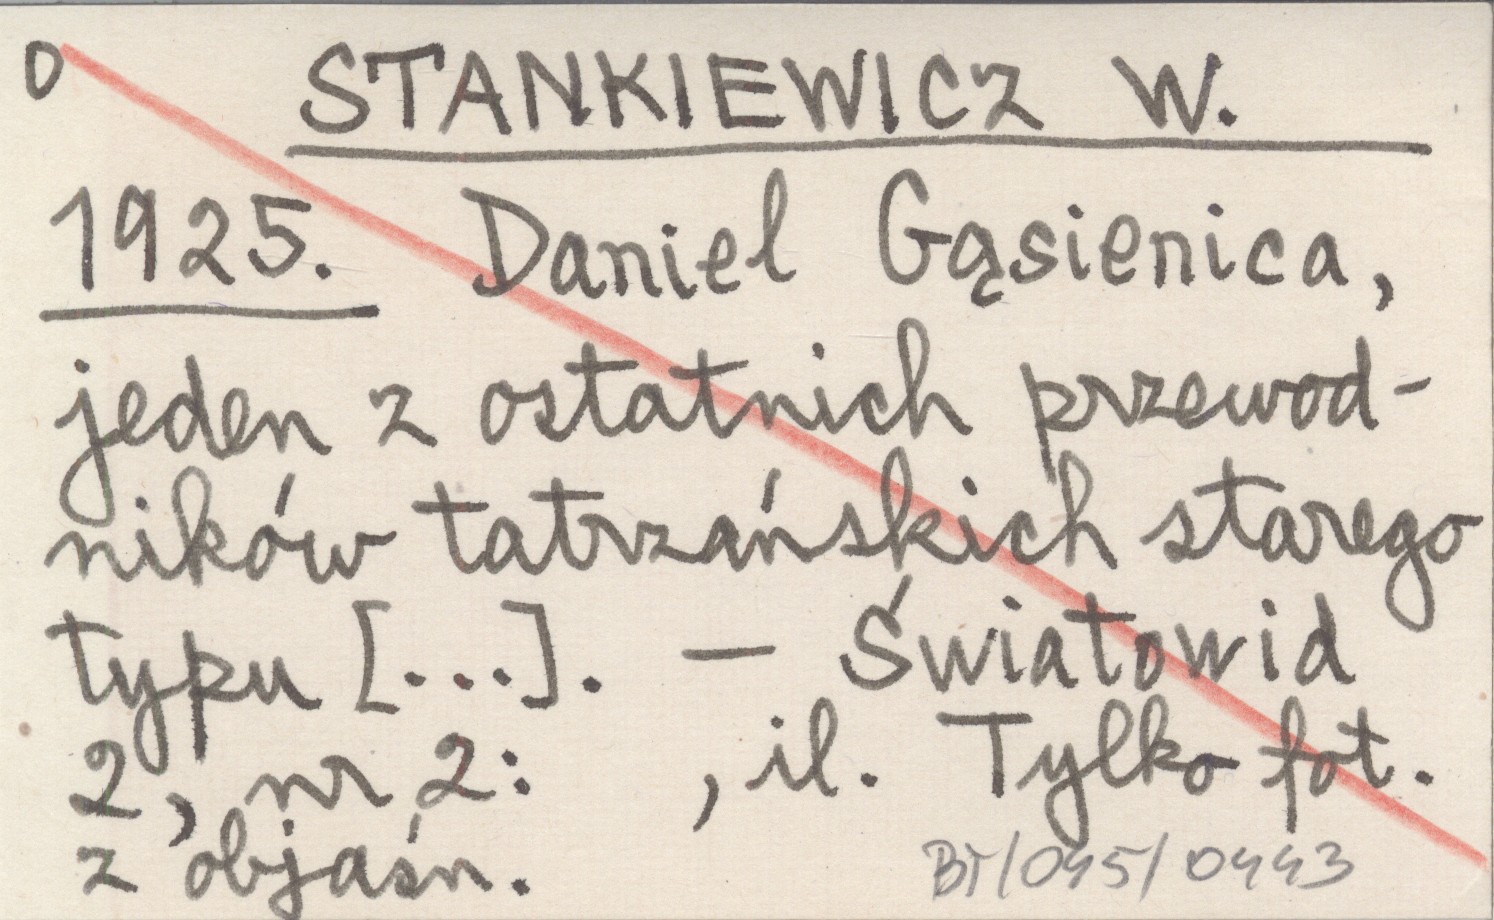 0 STANKIEWICZ W.
1925. Daniel Gąsienica,
jeden z ostatnich przewod-
ników tatrzańskich starego
typu [...]. – Światowid
2, nr 2: , il. Tylko fot.
z objaśn.
BT/045/0443